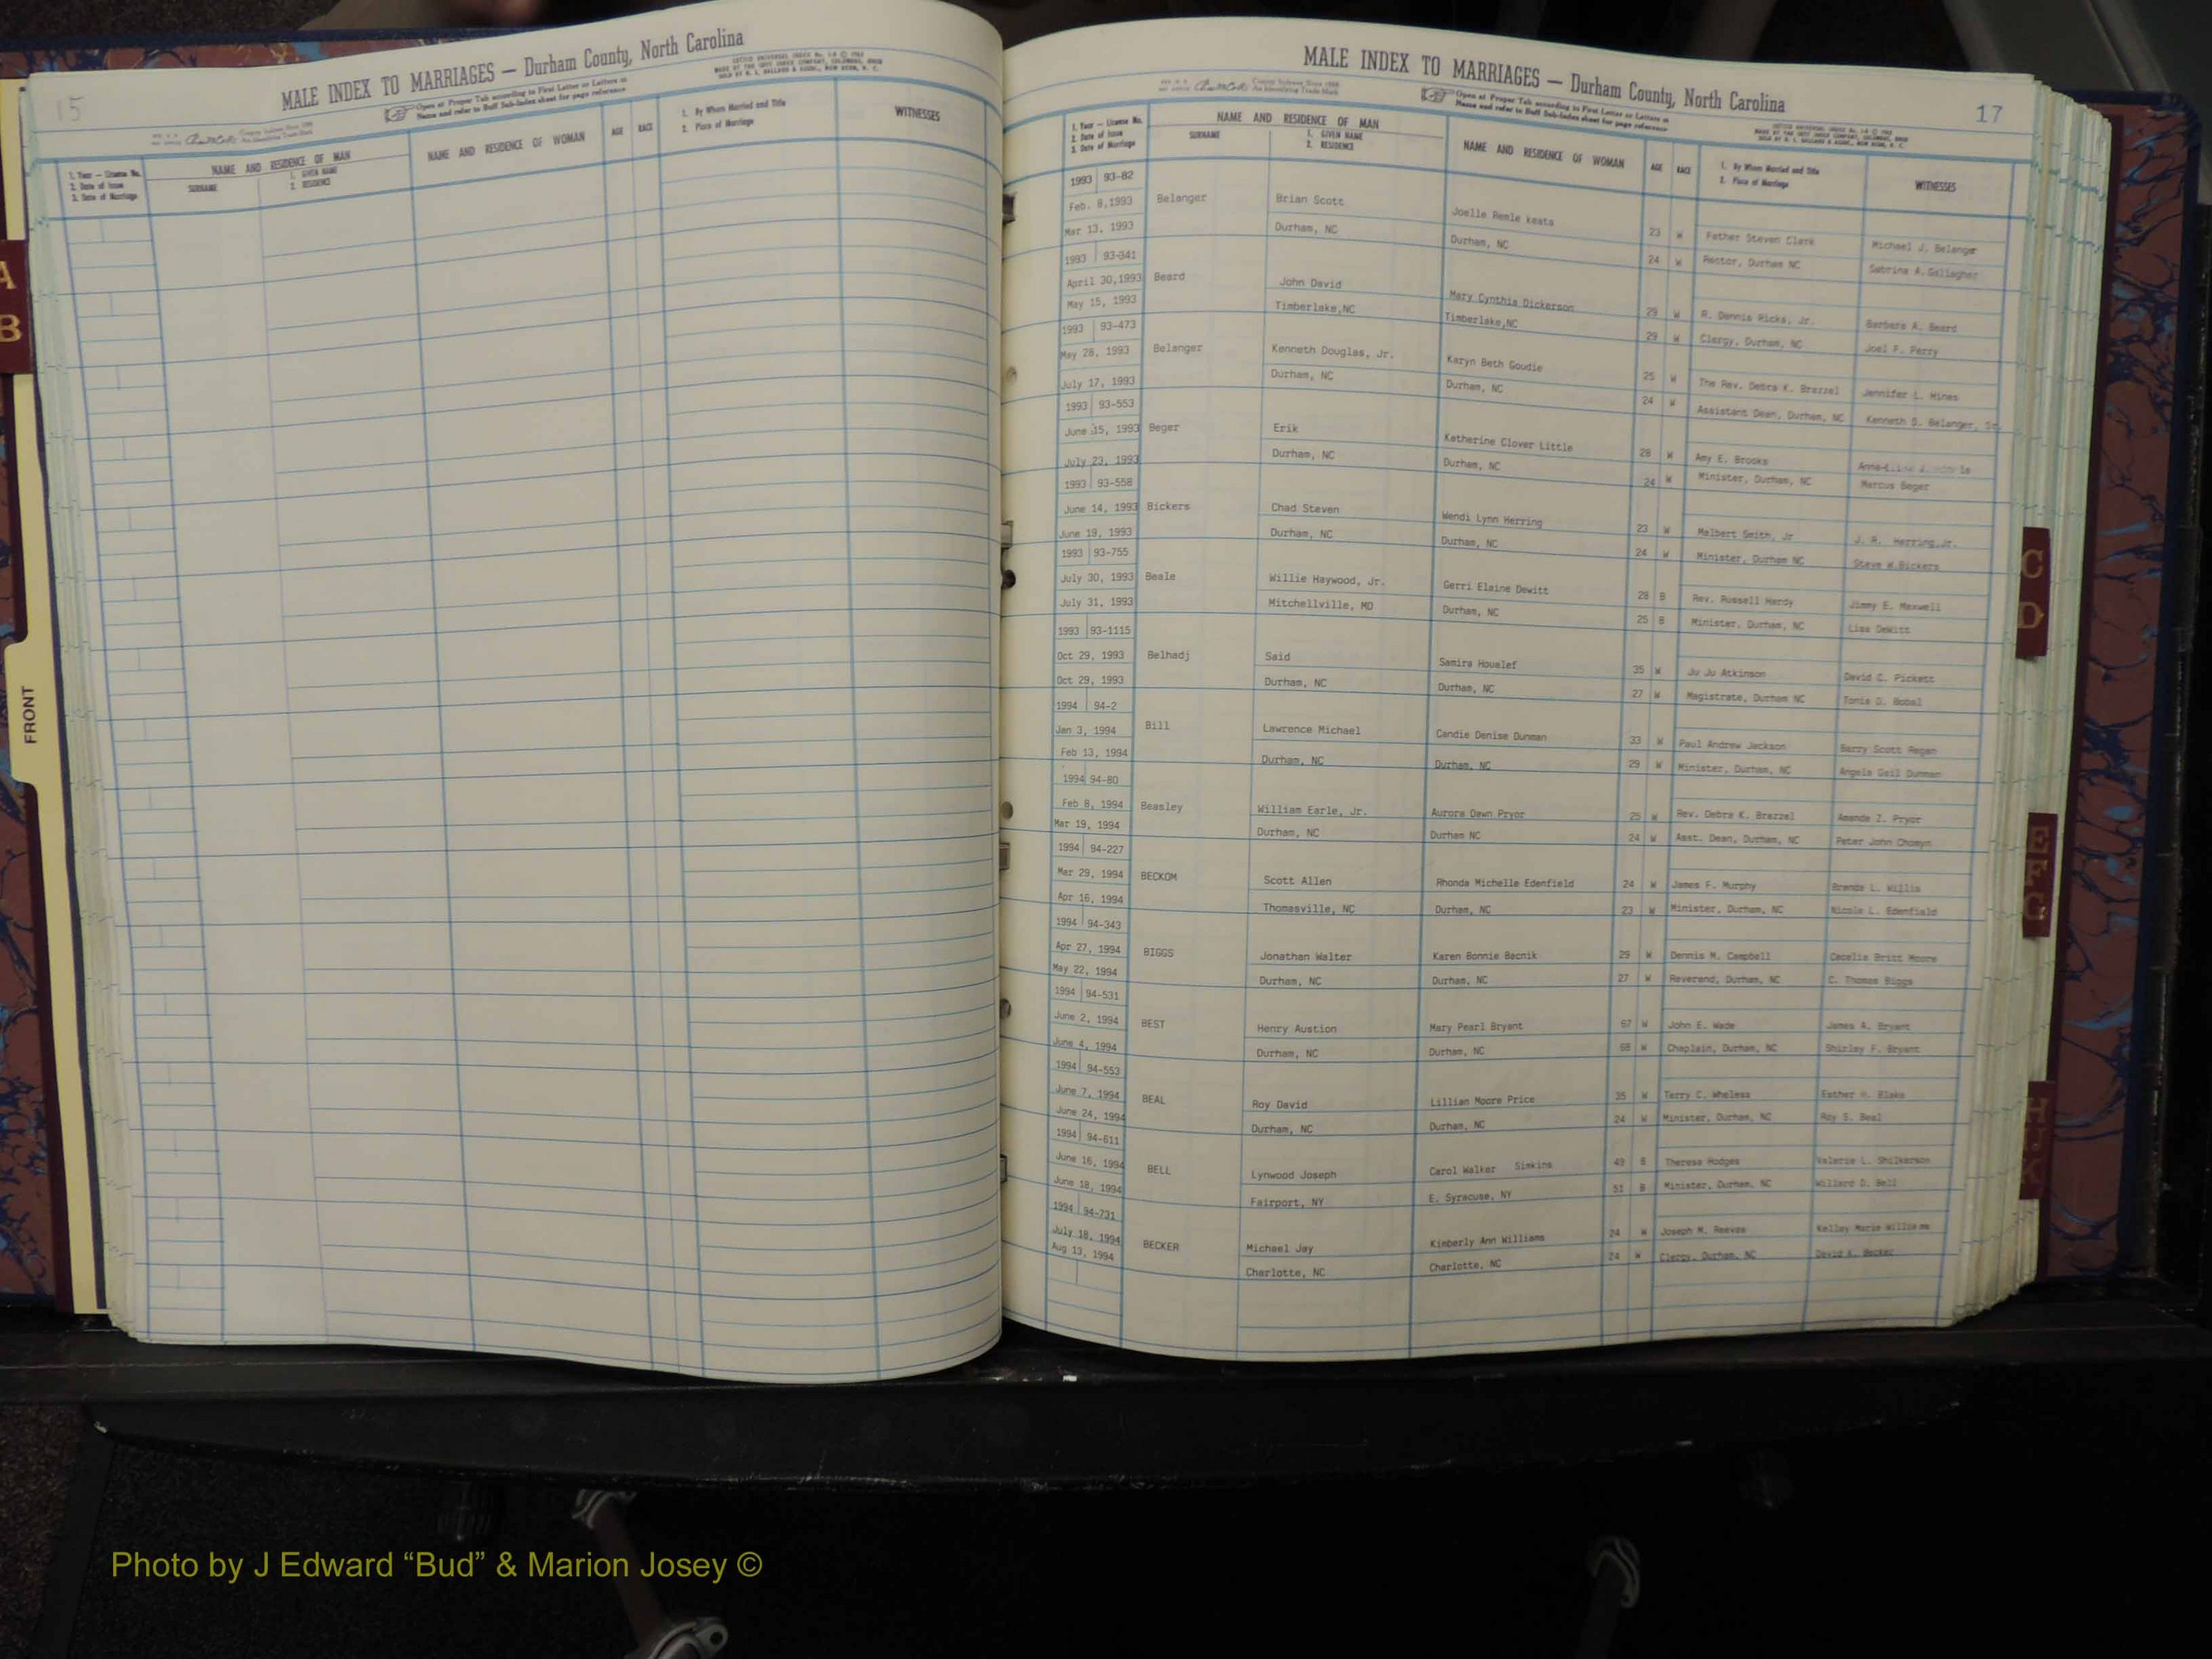 15
MALE INDEX TO MARRIAGES — Durham County, North Carolina
Open at Proper Tab according to First Letter or Letters of
Name and refer to Buff Sub-Index sheet for page reference
1. Year — License No.
2. Date of Issue
3. Date of Marriage
NAME AND RESIDENCE OF MAN
SURNAME
1. GIVEN NAME
2. RESIDENCE
NAME AND RESIDENCE OF WOMAN
AGE
RACE
1. By Whom Married and Title
2. Place of Marriage
WITNESSES
A
B
FRONT
MALE INDEX TO MARRIAGES — Durham County, North Carolina
17
Open at Proper Tab according to First Letter or Letters of
Name and refer to Buff Sub-Index sheet for page reference
1. Year — License No.
2. Date of Issue
3. Date of Marriage
NAME AND RESIDENCE OF MAN
SURNAME
1. GIVEN NAME
2. RESIDENCE
NAME AND RESIDENCE OF WOMAN
AGE
RACE
1. By Whom Married and Title
2. Place of Marriage
WITNESSES
1993 93-82
Feb. 8,1993 Belanger Brian Scott Joelle Remle keats 23 W Father Steven Clark Michael J. Belanger
Mar 13, 1993 Durham, NC Durham, NC 24 W Rector, Durham NC Sabrina A.Gallagher
1993 93-341
April 30,1993 Beard John David Mary Cynthia Dickerson 29 W R. Dennis Ricks, Jr. Barbara A. Beard
May 15, 1993 Timberlake,NC Timberlake,NC 29 W Clergy, Durham, NC Joel F. Perry
1993 93-473
May 28, 1993 Belanger Kenneth Douglas, Jr. Karyn Beth Goudie 25 W The Rev. Debra K. Brazzel Jennifer L. Hines
July 17, 1993 Durham, NC Durham, NC 24 W Assistant Dean, Durham, NC Kenneth D. Belanger, Sr.
1993 93-553
June 15, 1993 Beger Erik Katherine Clover Little 28 W Amy E. Brooks
July 23, 1993 Durham, NC Durham, NC 24 W Minister, Durham, NC Marcus Beger
1993 93-558
June 14, 1993 Bickers Chad Steven Wendi Lynn Herring 23 W Melbert Smith, Jr J. R. Herring,Jr.
June 19, 1993 Durham, NC Durham, NC 24 W Minister, Durham NC Steve W.Bickers
1993 93-755
July 30, 1993 Beale Willie Haywood, Jr. Gerri Elaine Dewitt 28 B Rev. Russell Hardy Jimmy E. Maxwell
July 31, 1993 Mitchellville, MD Durham, NC 25 B Minister, Durham, NC Lisa DeWitt
1993 93-1115
Oct 29, 1993 Belhadj Said Samira Houalef 35 W Ju Ju Atkinson David C. Pickett
Oct 29, 1993 Durham, NC Durham, NC 27 W Magistrate, Durham NC Tonie D. Bobal
1994 94-2
Jan 3, 1994 Bill Lawrence Michael Candie Denise Dunman 33 W Paul Andrew Jackson Barry Scott Regan
Feb 13, 1994 Durham, NC Durham, NC 29 W Minister, Durham, NC Angela Gail Dunman
1994 94-80
Feb 8, 1994 Beasley William Earle, Jr. Aurora Dawn Pryor 25 W Rev. Debra K. Brazzel Amanda Z. Pryor
Mar 19, 1994 Durham, NC Durham NC 24 W Asst. Dean, Durham, NC Peter John Chomyn
1994 94-227
Mar 29, 1994 BECKOM Scott Allen Rhonda Michelle Edenfield 24 W James F. Murphy Brenda L. Willis
Apr 16, 1994 Thomasville, NC Durham, NC 23 W Minister, Durham, NC Nicole L. Edenfield
1994 94-343
Apr 27, 1994 BIGGS Jonathan Walter Karen Bonnie Bacnik 29 W Dennis M. Campbell Cecelia Britt Moore
May 22, 1994 Durham, NC Durham, NC 27 W Reverend, Durham, NC C. Thomas Biggs
1994 94-531
June 2, 1994 BEST Henry Austion Mary Pearl Bryant 67 W John E. Wade James A. Bryant
June 4, 1994 Durham, NC Durham, NC 68 W Chaplain, Durham, NC Shirley F. Bryant
1994 94-553
June 7, 1994 BEAL Roy David Lillian Moore Price 35 W Terry C. Wheless Esther H. Blake
June 24, 1994 Durham, NC Durham, NC 24 W Minister, Durham, NC Roy S. Beal
1994 94-611
June 16, 1994 BELL Lynwood Joseph Carol Walker Simkins 49 B Theresa Hodges Valerie L. Shilkerson
June 18, 1994 Fairport, NY E. Syracuse, NY 51 B Minister, Durham, NC Willard D. Bell
1994 94-731
July 18, 1994 BECKER Michael Jay Kimberly Ann Williams 24 W Joseph M. Reeves Kelley Marie Williams
Aug 13, 1994 Charlotte, NC Charlotte, NC 24 W Clergy, Durham, NC David K. Becker
C
D
Photo by J Edward “Bud” & Marion Josey ©